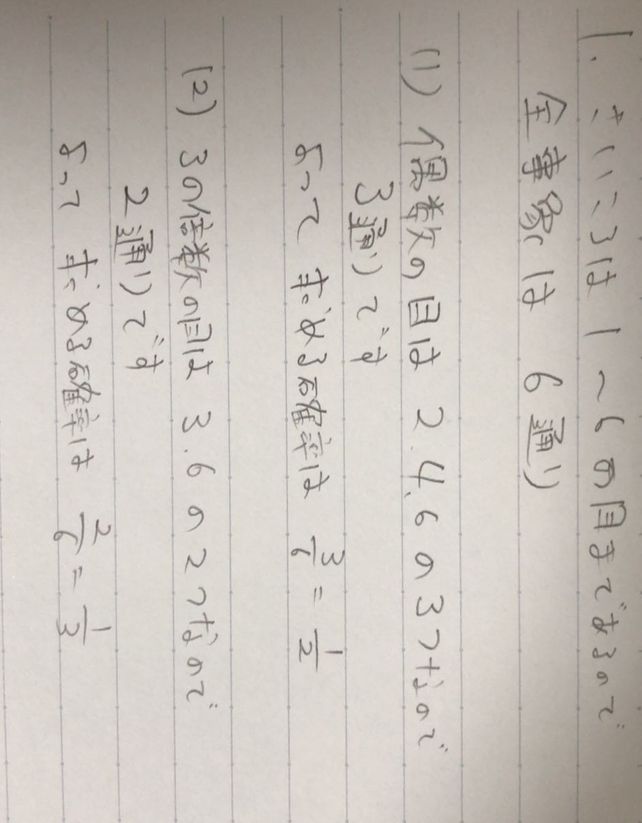 1. さいころは 1~6の目まであるので
全事象は 6通り
(1) 偶数の目は 2.4.6の3つなので
3通りです
よって 求める確率は 3/6 = 1/2
(2) 3の倍数の目は 3.6の2つなので
2通りです
よって 求める確率は 2/6 = 1/3